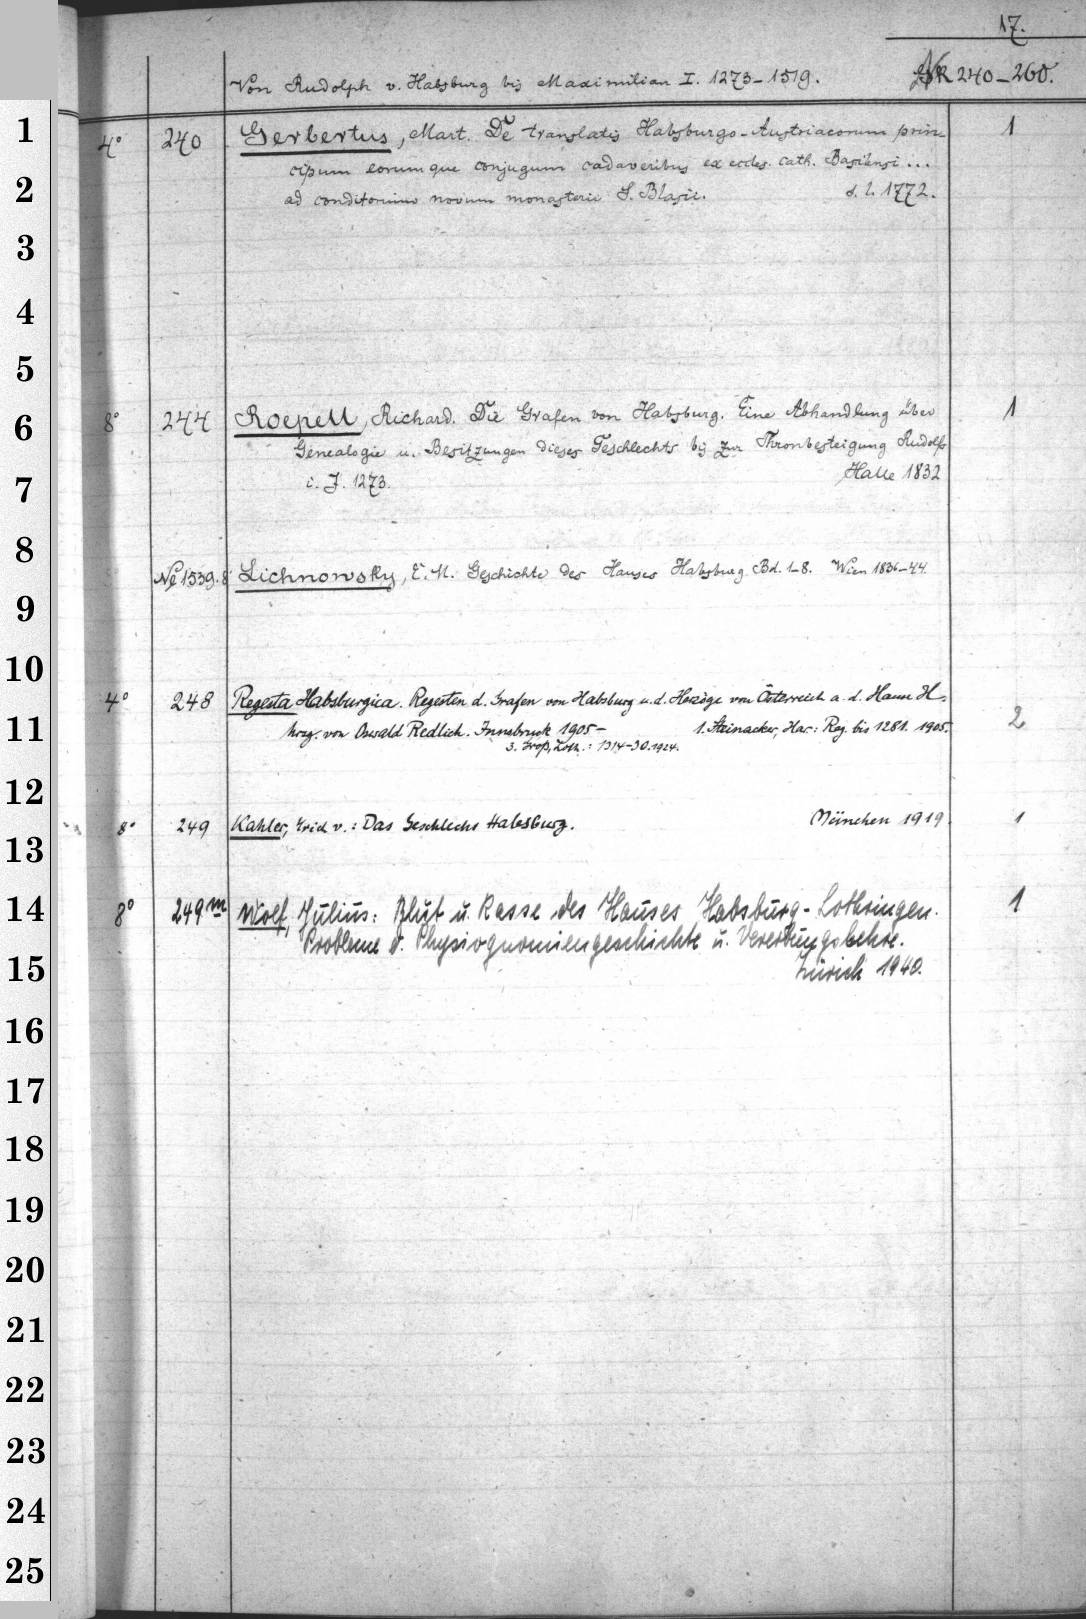 17.
Von Rudolph v. Habsburg bis Maximilian I. 1273-1519. NR 240-260.
1
4° 240 Gerbertus, Mart. De translatis Habsburgo-Austriacorum prin- 1
cipum eorumque conjugum cadaveribus ex eccles. cath. Basiliensi ...
2
ad conditorium novum monasterii S. Blasii. s. l. 1772.
3
4
5
6
8° 244 Roepell, Richard. Die Grafen von Habsburg. Eine Abhandlung über 1
Genealogie u. Besitzungen dieses Geschlechts bis zur Thronbesteigung Rudolfs
7
i. J. 1273. Halle 1832
8
Ne 1539.8 Lichnowsky, E. M. Geschichte des Hauses Habsburg Bd. 1-8. Wien 1836-44.
9
10
4° 248 Regesta Habsburgica. Regesten d. Grafen von Habsburg u. d. Herzöge von Österreich a. d. Hause H-. 2
11
hrsg. von Oswald Redlich. Innsbruck 1905- 1. Steinacker, Har.: Reg. bis 1281. 1905.
3. Groß, Loth.: 1314-30. 1924.
12
8° 249 Kahler, Erich v.: Das Geschlecht Habsburg. München 1919. 1
13
14
8° 249m Wolf, Julius: Blut u. Rasse des Hauses Habsburg-Lothringen. 1
Probleme d. Physiognomiengeschichte u. Vererbungslehre.
15
Zürich 1940.
16
17
18
19
20
21
22
23
24
25